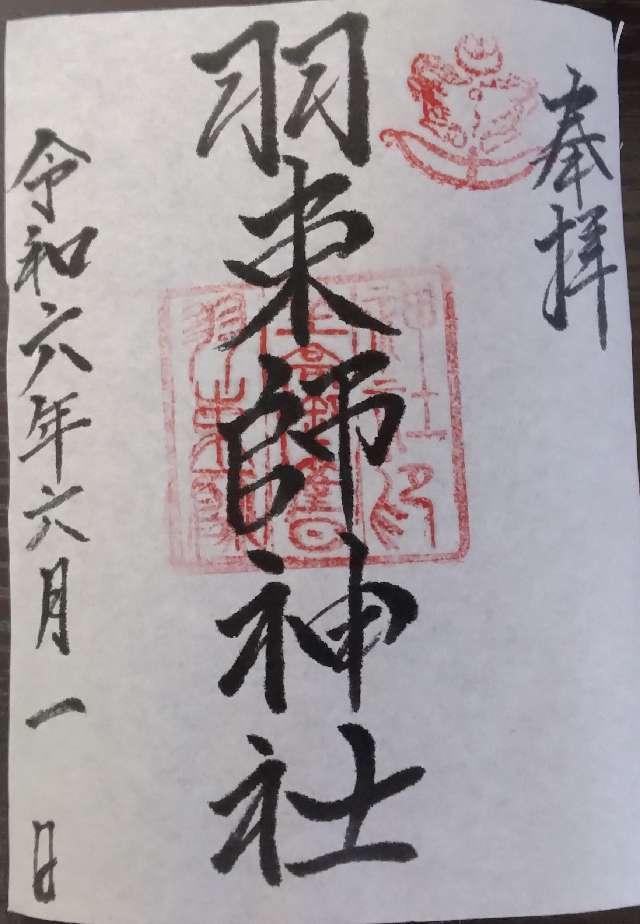 奉拝
羽束師神社
令和六年六月一日